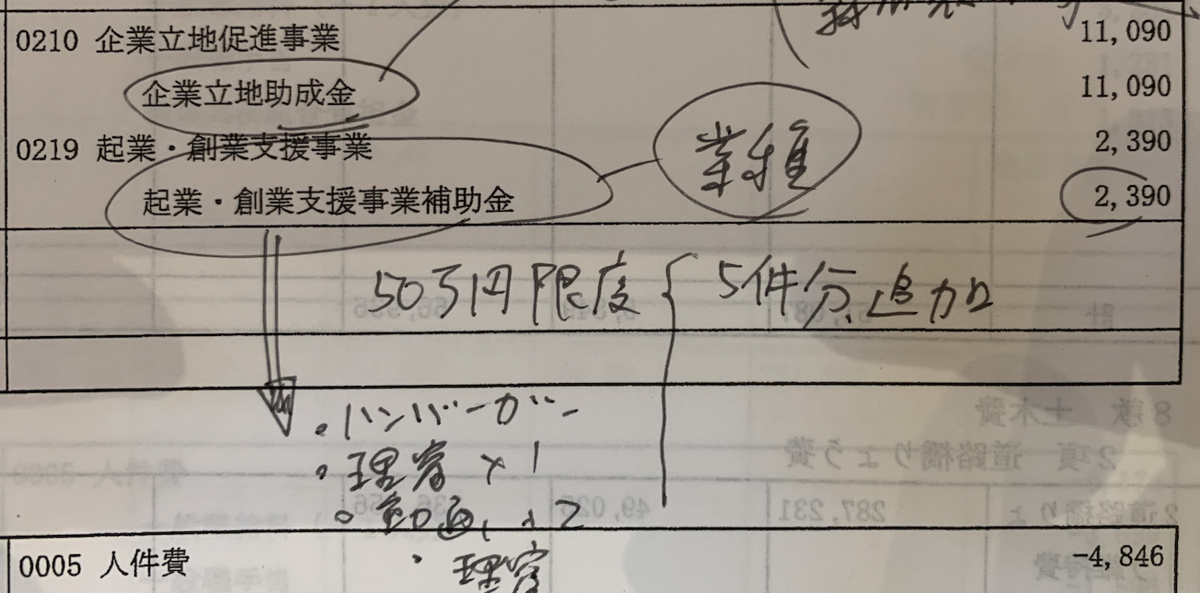 0210 企業立地促進事業 11,090
企業立地助成金 11,090
0219 起業・創業支援事業 2,390
起業・創業支援事業補助金 2,390
業種
50万円限度 { 5件分追加
・ハンバーガー
・理容 × 1
・動画, × 2
・理容
0005 人件費 -4,846
8款 土木費
2項 道路橋りょう費
287,231